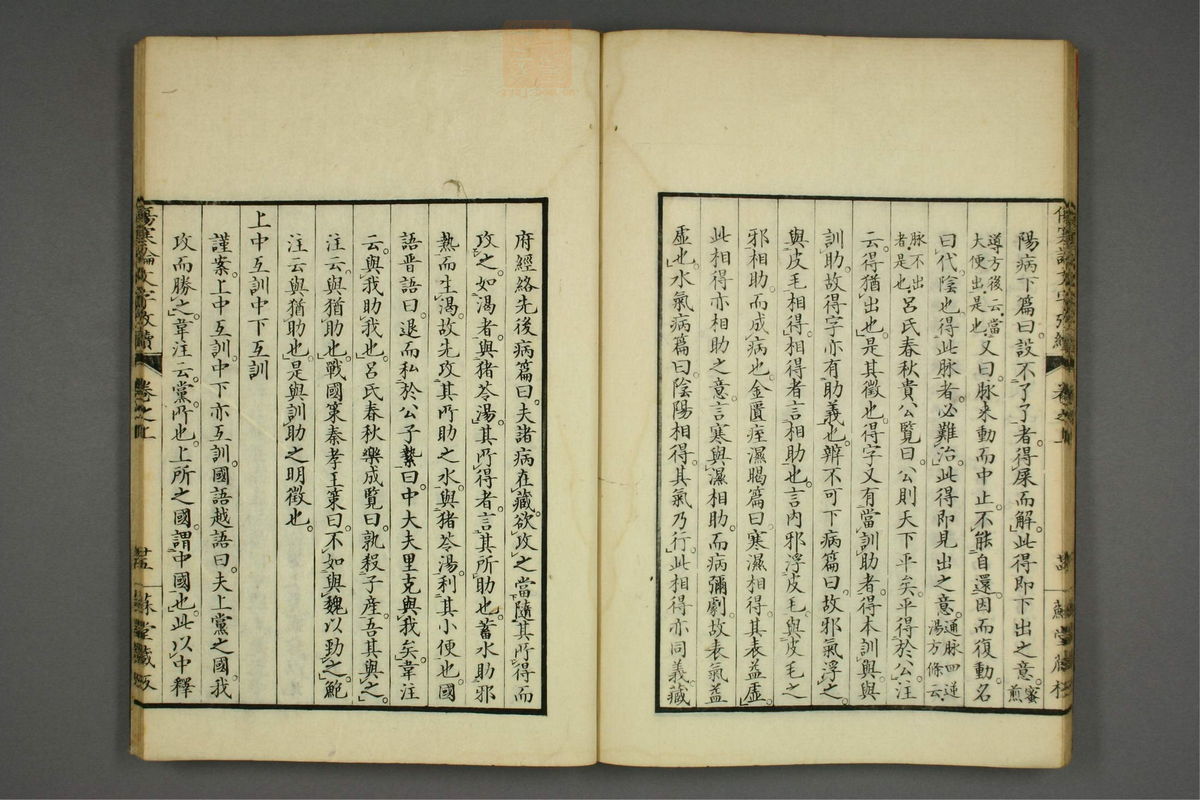 陽病下篇曰。設不了了者。得屎而解。此得即下出之意。蜜煎
導方後云。當大便出是也又曰。脉来動而中止。不能自還。因而復動。名
曰代陰也。得此脉者。必難治。此得即見出之意。通脉四逆湯方條云。
脉不出者是也呂氏春秋貴公覽曰。公則天下平矣。平得於公。注
云。得猶出也。是其徵也。得字又有當訓助者。得本訓與與
訓助。故得字亦有助義也。辨不可下病篇曰。故邪氣浮之
與皮毛相得。相得者言相助也。言内邪浮皮毛。與皮毛之
邪相助。而成病也。金匱痓濕暍篇曰。寒濕相得。其表益虛。
此相得亦相助之意。言寒與濕相助。而病彌劇。故表氣益
虛也。水氣病篇曰。陰陽相得。其氣乃行。此相得亦同義。藏
府經絡先後病篇曰。夫諸病在藏。欲攻之。當隨其所得而
攻之。如渴者。與猪苓湯。其所得者。言其所助也。蓄水助邪
熱而生渴。故先攻其所助之水。與猪苓湯。利其小便也。國
語晋語曰。退而私於公子縶曰。中大夫里克與我矣。韋注
云。與我助我也。呂氏春秋樂成覽曰。孰殺子産。吾其與之。
注云。與猶助也。戰國策秦孝王策曰。不如與魏以勁之。鮑
注云與猶助也。是與訓助之明徵也。
上中互訓中下互訓
謹案。上中互訓。中下亦互訓。國語越語曰。夫上黨之國。我
攻而勝之。韋注云。黨所也。上所之國。謂中國也。此以中釋
傷寒論文字攷續
卷之上
蘇堂藏板